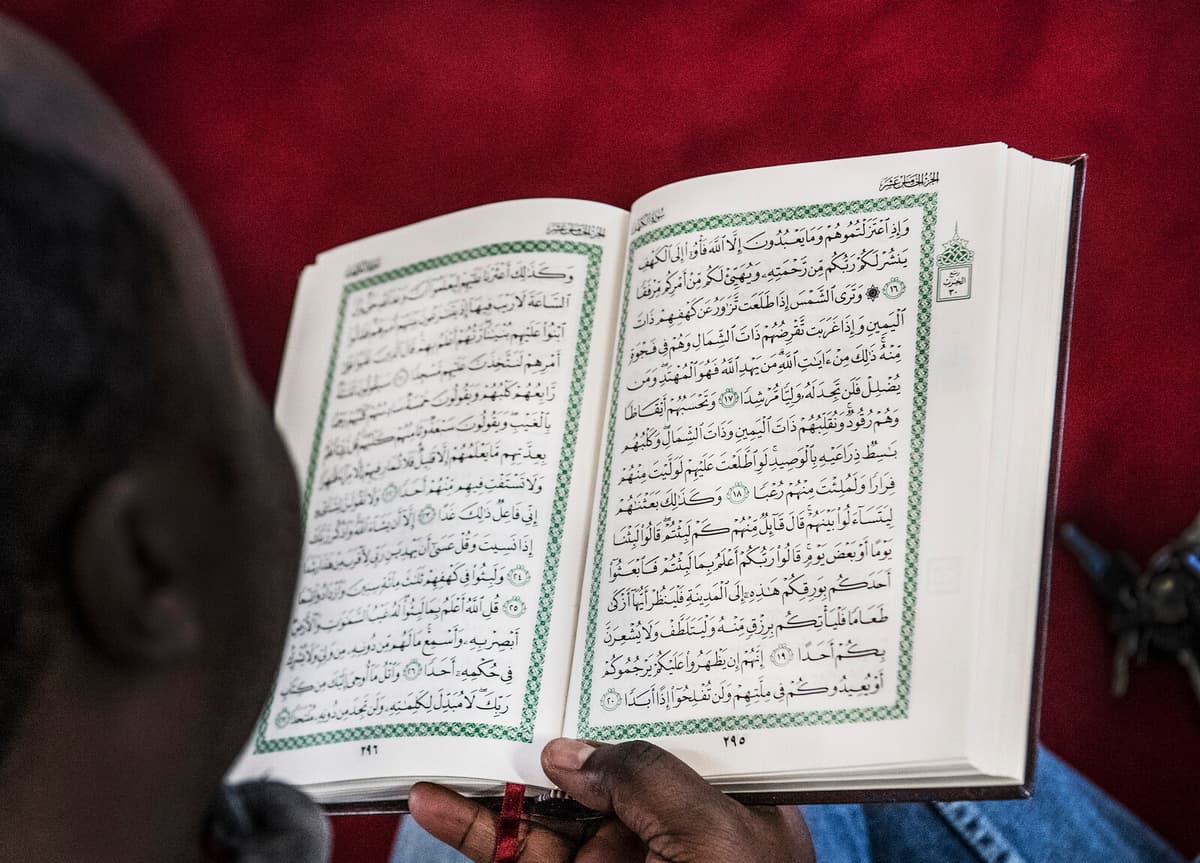 الجزء الخامس عشر
سُورَةُ الكَهْفِ
وَإِذِ ٱعْتَزَلْتُمُوهُمْ وَمَا يَعْبُدُونَ إِلَّا ٱللَّهَ فَأْوُۥٓا۟ إِلَى ٱلْكَهْفِ
يَنشُرْ لَكُمْ رَبُّكُم مِّن رَّحْمَتِهِۦ وَيُهَيِّئْ لَكُم مِّنْ أَمْرِكُم مِّرْفَقًا
١٦ ۞ وَتَرَى ٱلشَّمْسَ إِذَا طَلَعَت تَّزَٰوَرُ عَن كَهْفِهِمْ ذَاتَ
ٱلْيَمِينِ وَإِذَا غَرَبَت تَّقْرِضُهُمْ ذَاتَ ٱلشِّمَالِ وَهُمْ فِى فَجْوَةٍ
مِّنْهُ ۚ ذَٰلِكَ مِنْ ءَايَـٰتِ ٱللَّهِ ۗ مَن يَهْدِ ٱللَّهُ فَهُوَ ٱلْمُهْتَدِ ۖ وَمَن
يُضْلِلْ فَلَن تَجِدَ لَهُۥ وَلِيًّا مُّرْشِدًا ١٧ وَتَحْسَبُهُمْ أَيْقَاظًا
وَهُمْ رُقُودٌ ۚ وَنُقَلِّبُهُمْ ذَاتَ ٱلْيَمِينِ وَذَاتَ ٱلشِّمَالِ ۖ وَكَلْبُهُم
بَـٰسِطٌ ذِرَاعَيْهِ بِٱلْوَصِيدِ ۚ لَوِ ٱطَّلَعْتَ عَلَيْهِمْ لَوَلَّيْتَ مِنْهُمْ
فِرَارًا وَلَمُلِئْتَ مِنْهُمْ رُعْبًا ١٨ وَكَذَٰلِكَ بَعَثْنَـٰهُمْ
لِيَتَسَآءَلُوا۟ بَيْنَهُمْ ۚ قَالَ قَآئِلٌ مِّنْهُمْ كَمْ لَبِثْتُمْ ۖ قَالُوا۟ لَبِثْنَا
يَوْمًا أَوْ بَعْضَ يَوْمٍ ۚ قَالُوا۟ رَبُّكُمْ أَعْلَمُ بِمَا لَبِثْتُمْ فَٱبْعَثُوٓا۟
أَحَدَكُم بِوَرِقِكُمْ هَـٰذِهِۦٓ إِلَى ٱلْمَدِينَةِ فَلْيَنظُرْ أَيُّهَآ أَزْكَىٰ
طَعَامًا فَلْيَأْتِكُم بِرِزْقٍ مِّنْهُ وَلْيَتَلَطَّفْ وَلَا يُشْعِرَنَّ
بِكُمْ أَحَدًا ١٩ إِنَّهُمْ إِن يَظْهَرُوا۟ عَلَيْكُمْ يَرْجُمُوكُمْ
أَوْ يُعِيدُوكُمْ فِى مِلَّتِهِمْ وَلَن تُفْلِحُوٓا۟ إِذًا أَبَدًا ٢٠
ربع
الحزب
٣٠
٢٩٥
الجزء الخامس عشر
وَكَذَٰلِكَ أَعْثَرْنَا عَلَيْهِمْ لِيَعْلَمُوٓا۟
ٱلسَّاعَةَ لَا رَيْبَ فِيهَآ إِذْ يَتَنَـٰزَعُونَ بَيْنَهُمْ أَمْرَهُمْ ۖ فَقَالُوا۟
ٱبْنُوا۟ عَلَيْهِم بُنْيَـٰنًا ۖ رَّبُّهُمْ أَعْلَمُ بِهِمْ ۚ قَالَ ٱلَّذِينَ غَلَبُوا۟ عَلَىٰٓ
أَمْرِهِمْ لَنَتَّخِذَنَّ عَلَيْهِم مَّسْجِدًا ٢١ سَيَقُولُونَ ثَلَـٰثَةٌ
رَّابِعُهُمْ كَلْبُهُمْ وَيَقُولُونَ خَمْسَةٌ سَادِسُهُمْ كَلْبُهُمْ رَجْمًۢا
بِٱلْغَيْبِ ۖ وَيَقُولُونَ سَبْعَةٌ وَثَامِنُهُمْ كَلْبُهُمْ ۚ قُل رَّبِّىٓ أَعْلَمُ
بِعِدَّتِهِم مَّا يَعْلَمُهُمْ إِلَّا قَلِيلٌ ۗ فَلَا تُمَارِ فِيهِمْ إِلَّا مِرَآءً ظَـٰهِرًا
وَلَا تَسْتَفْتِ فِيهِم مِّنْهُمْ أَحَدًا ٢٢ وَلَا تَقُولَنَّ لِشَا۟ىْءٍ
إِنِّى فَاعِلٌ ذَٰلِكَ غَدًا ٢٣ إِلَّآ أَن يَشَآءَ ٱللَّهُ ۚ وَٱذْكُر رَّبَّكَ
إِذَا نَسِيتَ وَقُلْ عَسَىٰٓ أَن يَهْدِيَنِ رَبِّى لِأَقْرَبَ مِنْ هَـٰذَا رَشَدًا
٢٤ وَلَبِثُوا۟ فِى كَهْفِهِمْ ثَلَـٰثَ مِا۟ئَةٍ سِنِينَ وَٱزْدَادُوا۟ تِسْعًا
٢٥ قُلِ ٱللَّهُ أَعْلَمُ بِمَا لَبِثُوا۟ ۖ لَهُۥ غَيْبُ ٱلسَّمَـٰوَٰتِ وَٱلْأَرْضِ ۖ
أَبْصِرْ بِهِۦ وَأَسْمِعْ ۚ مَا لَهُم مِّن دُونِهِۦ مِن وَلِىٍّ وَلَا يُشْرِكُ
فِى حُكْمِهِۦٓ أَحَدًا ٢٦ وَٱتْلُ مَآ أُوحِىَ إِلَيْكَ مِن كِتَابِ
رَبِّكَ ۖ لَا مُبَدِّلَ لِكَلِمَـٰتِهِۦ وَلَن تَجِدَ مِن دُونِهِۦ مُلْتَحَدًا ٢٧
٢٩٦